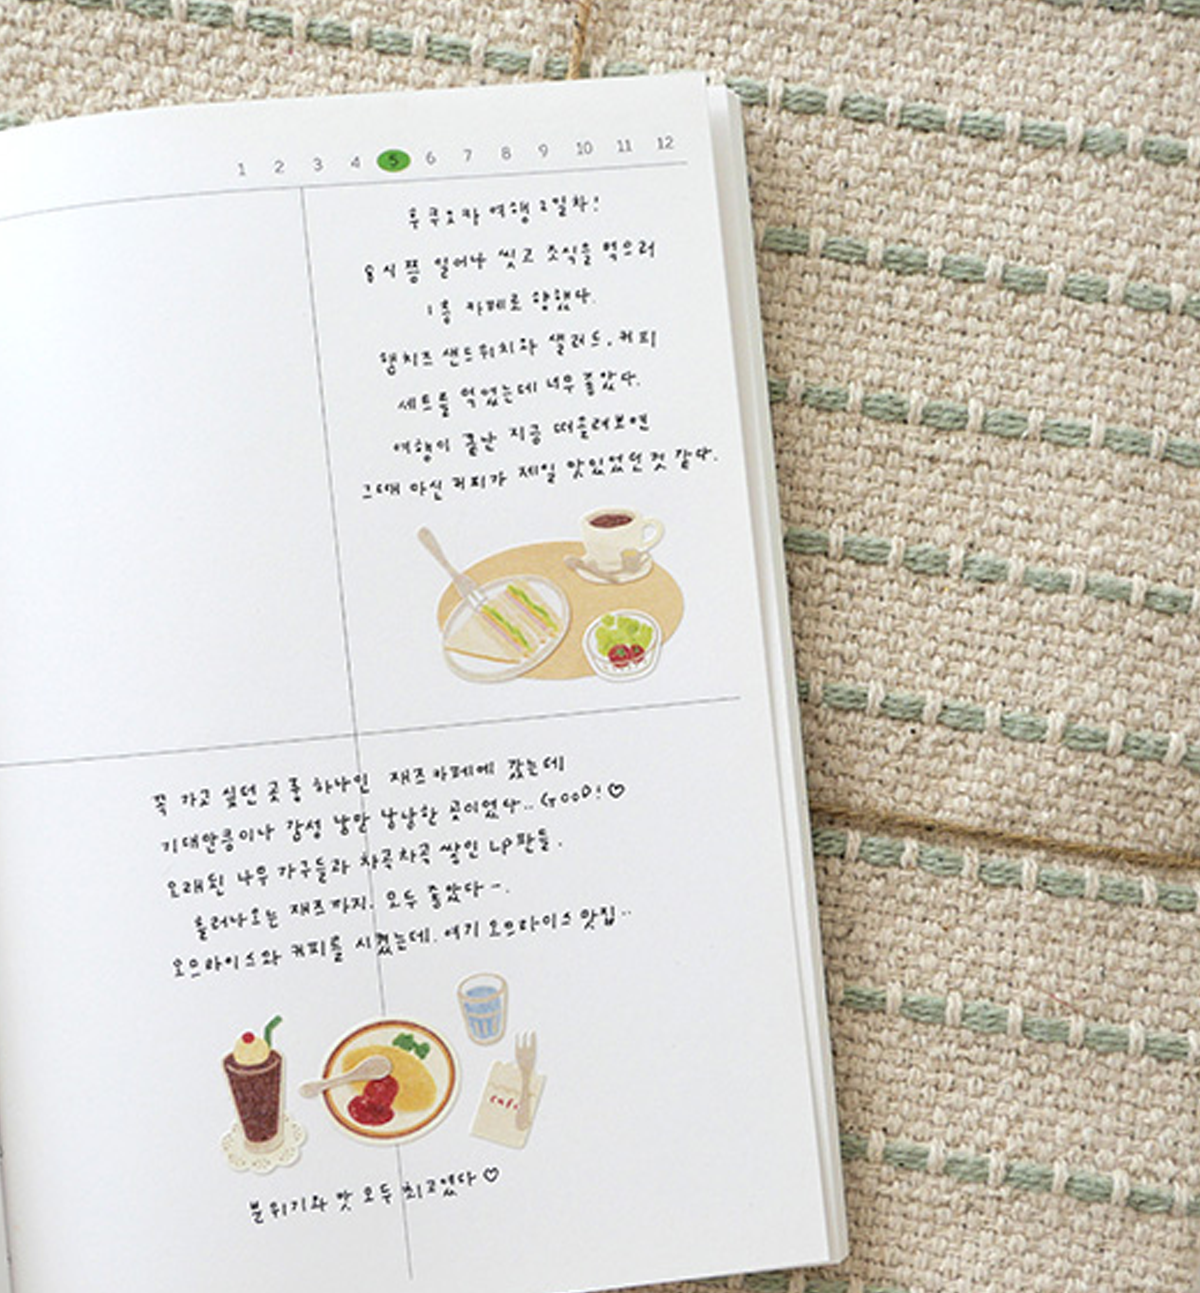 1 2 3 4 5 6 7 8 9 10 11 12
후쿠오카 여행 2일차!
8시쯤 일어나 씻고 조식을 먹으러
1층 카페로 향했다.
햄치즈 샌드위치와 샐러드, 커피
세트를 먹었는데 너무 좋았다.
여행이 끝난 지금 떠올려보면
그때 마신 커피가 제일 맛있었던 것 같다.
꼭 가고 싶던 곳 중 하나인 재즈카페에 갔는데
기대만큼이나 감성 낭만 낭낭한 곳이었다.. GOOD! ♡
오래된 나무 가구들과 차곡차곡 쌓인 LP판들.
흘러나오는 재즈까지. 모두 좋았다~.
오므라이스와 커피를 시켰는데, 여기 오므라이스 맛집..
cafe
분위기와 맛 모두 최고였다 ♡